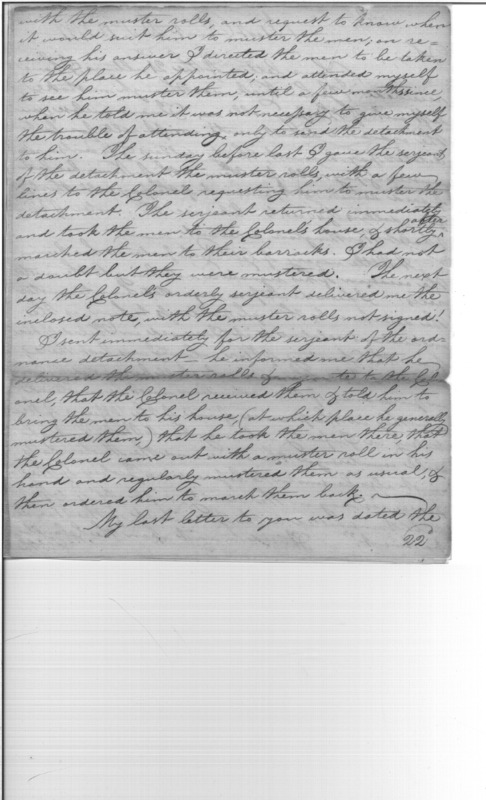 with the muster rolls, and request to know, when
it would suit him to muster the men; on re=
ceiving his answer I directed the men to be taken
to the place he appointed; and attended myself
to see him muster them, until a few months since
when he told me it was not necessary to give myself
the trouble of attending, only to send the detachment
to him. The sunday before last I gave the serjeant
of the detachment the muster rolls, with a few
lines to the Colonel requesting him to muster the
detachment. The serjeant returned immediately
and took the men to the Colonels house, & shortly after
marched the men to their barracks. I had not
a doubt but they were mustered. The next
day the Colonels orderly serjeant delivered me the
inclosed note, with the muster rolls not signed!
I sent immediately for the serjeant of the ord=
nance detachment — he informed me that he
delivered the muster rolls & my note to the Col
onel, that the Colonel received them & told him to
bring the men to his house, (at which place he generally
mustered them,) that he took the men there, that
the Colonel came out with a muster roll in his
hand and regularly mustered them as usual, &
then ordered him to march them back. —
My last letter to you was dated the
22